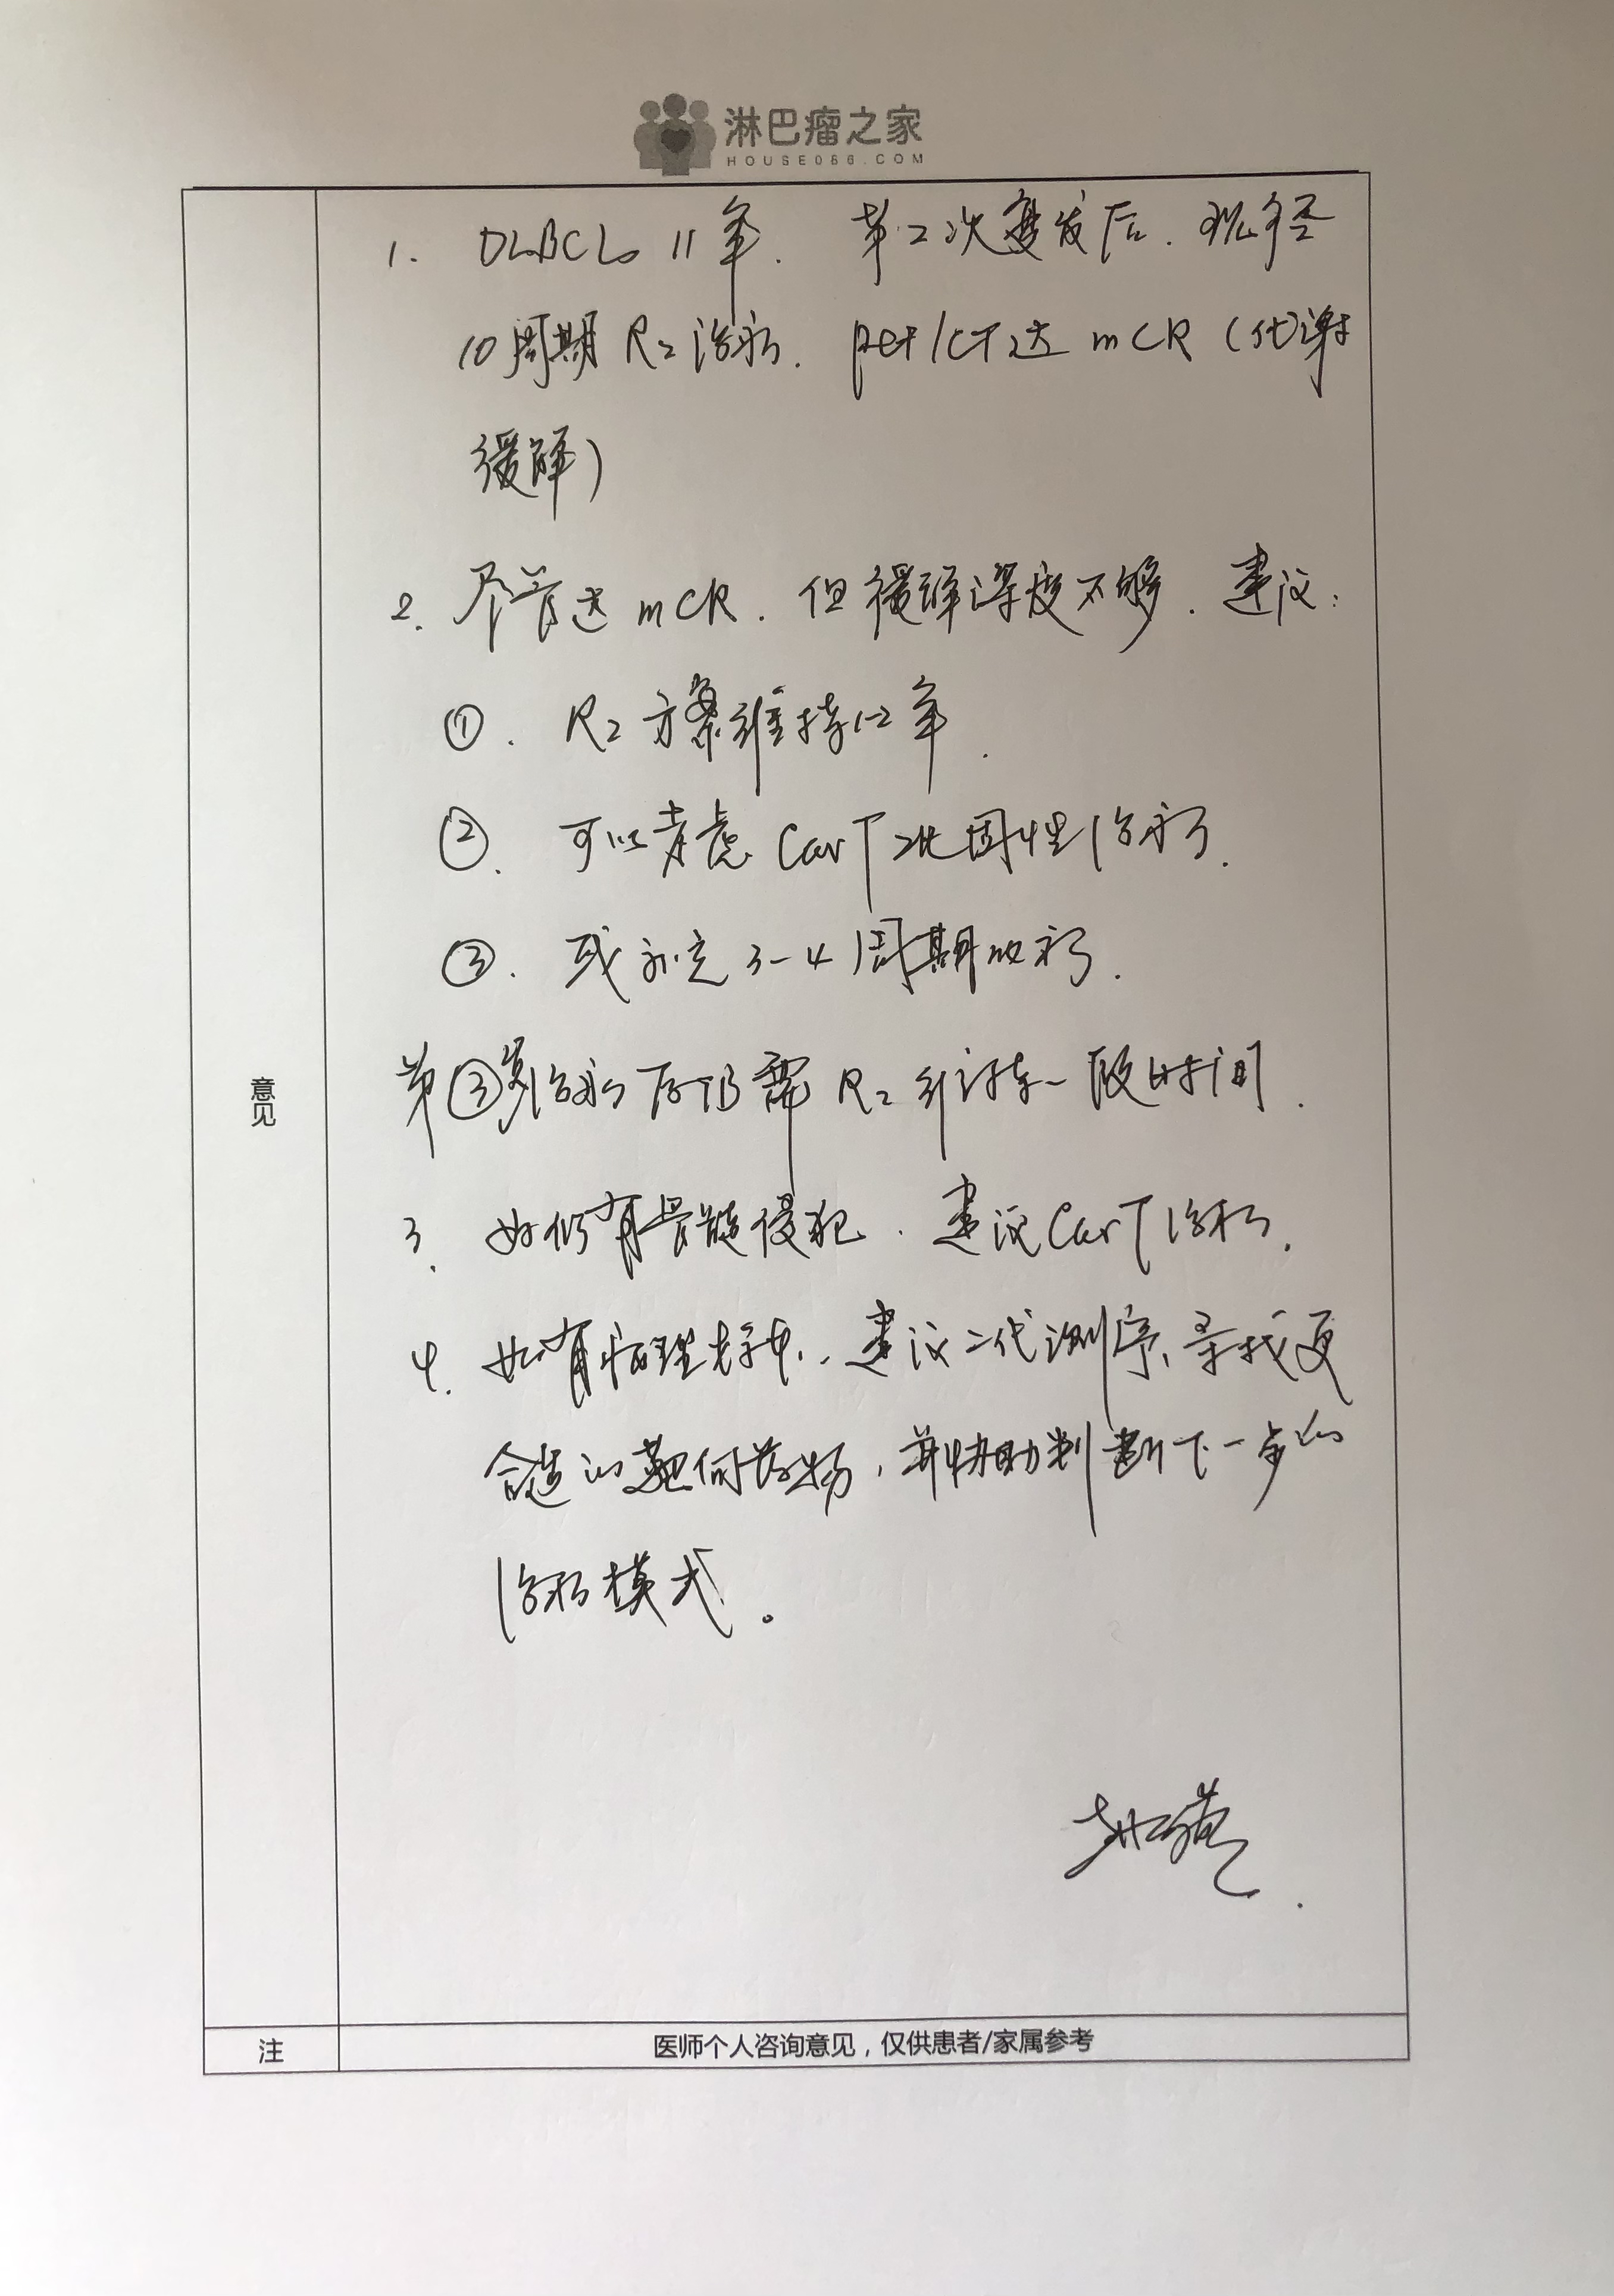 淋巴瘤之家
HOUSE086.COM
1. DLBCL 11年. 第2次复发后. 现经
10周期 R2 治疗. PET/CT达 mCR (代谢
缓解)
2. 尽管达 mCR. 但缓解深度不够. 建议:
①. R2 方案维持1-2年.
②. 可以考虑 CarT 巩固性治疗.
③. 或 3-4周期
第③ 治疗后仍需 R2 维持一段时间.
意见
3. 如仍有骨髓侵犯. 建议 CarT 治疗.
4. 如有病理标本. 建议二代测序、寻找更
合适的靶向药物, 并协助判断下一步的
治疗模式。
注
医师个人咨询意见，仅供患者/家属参考